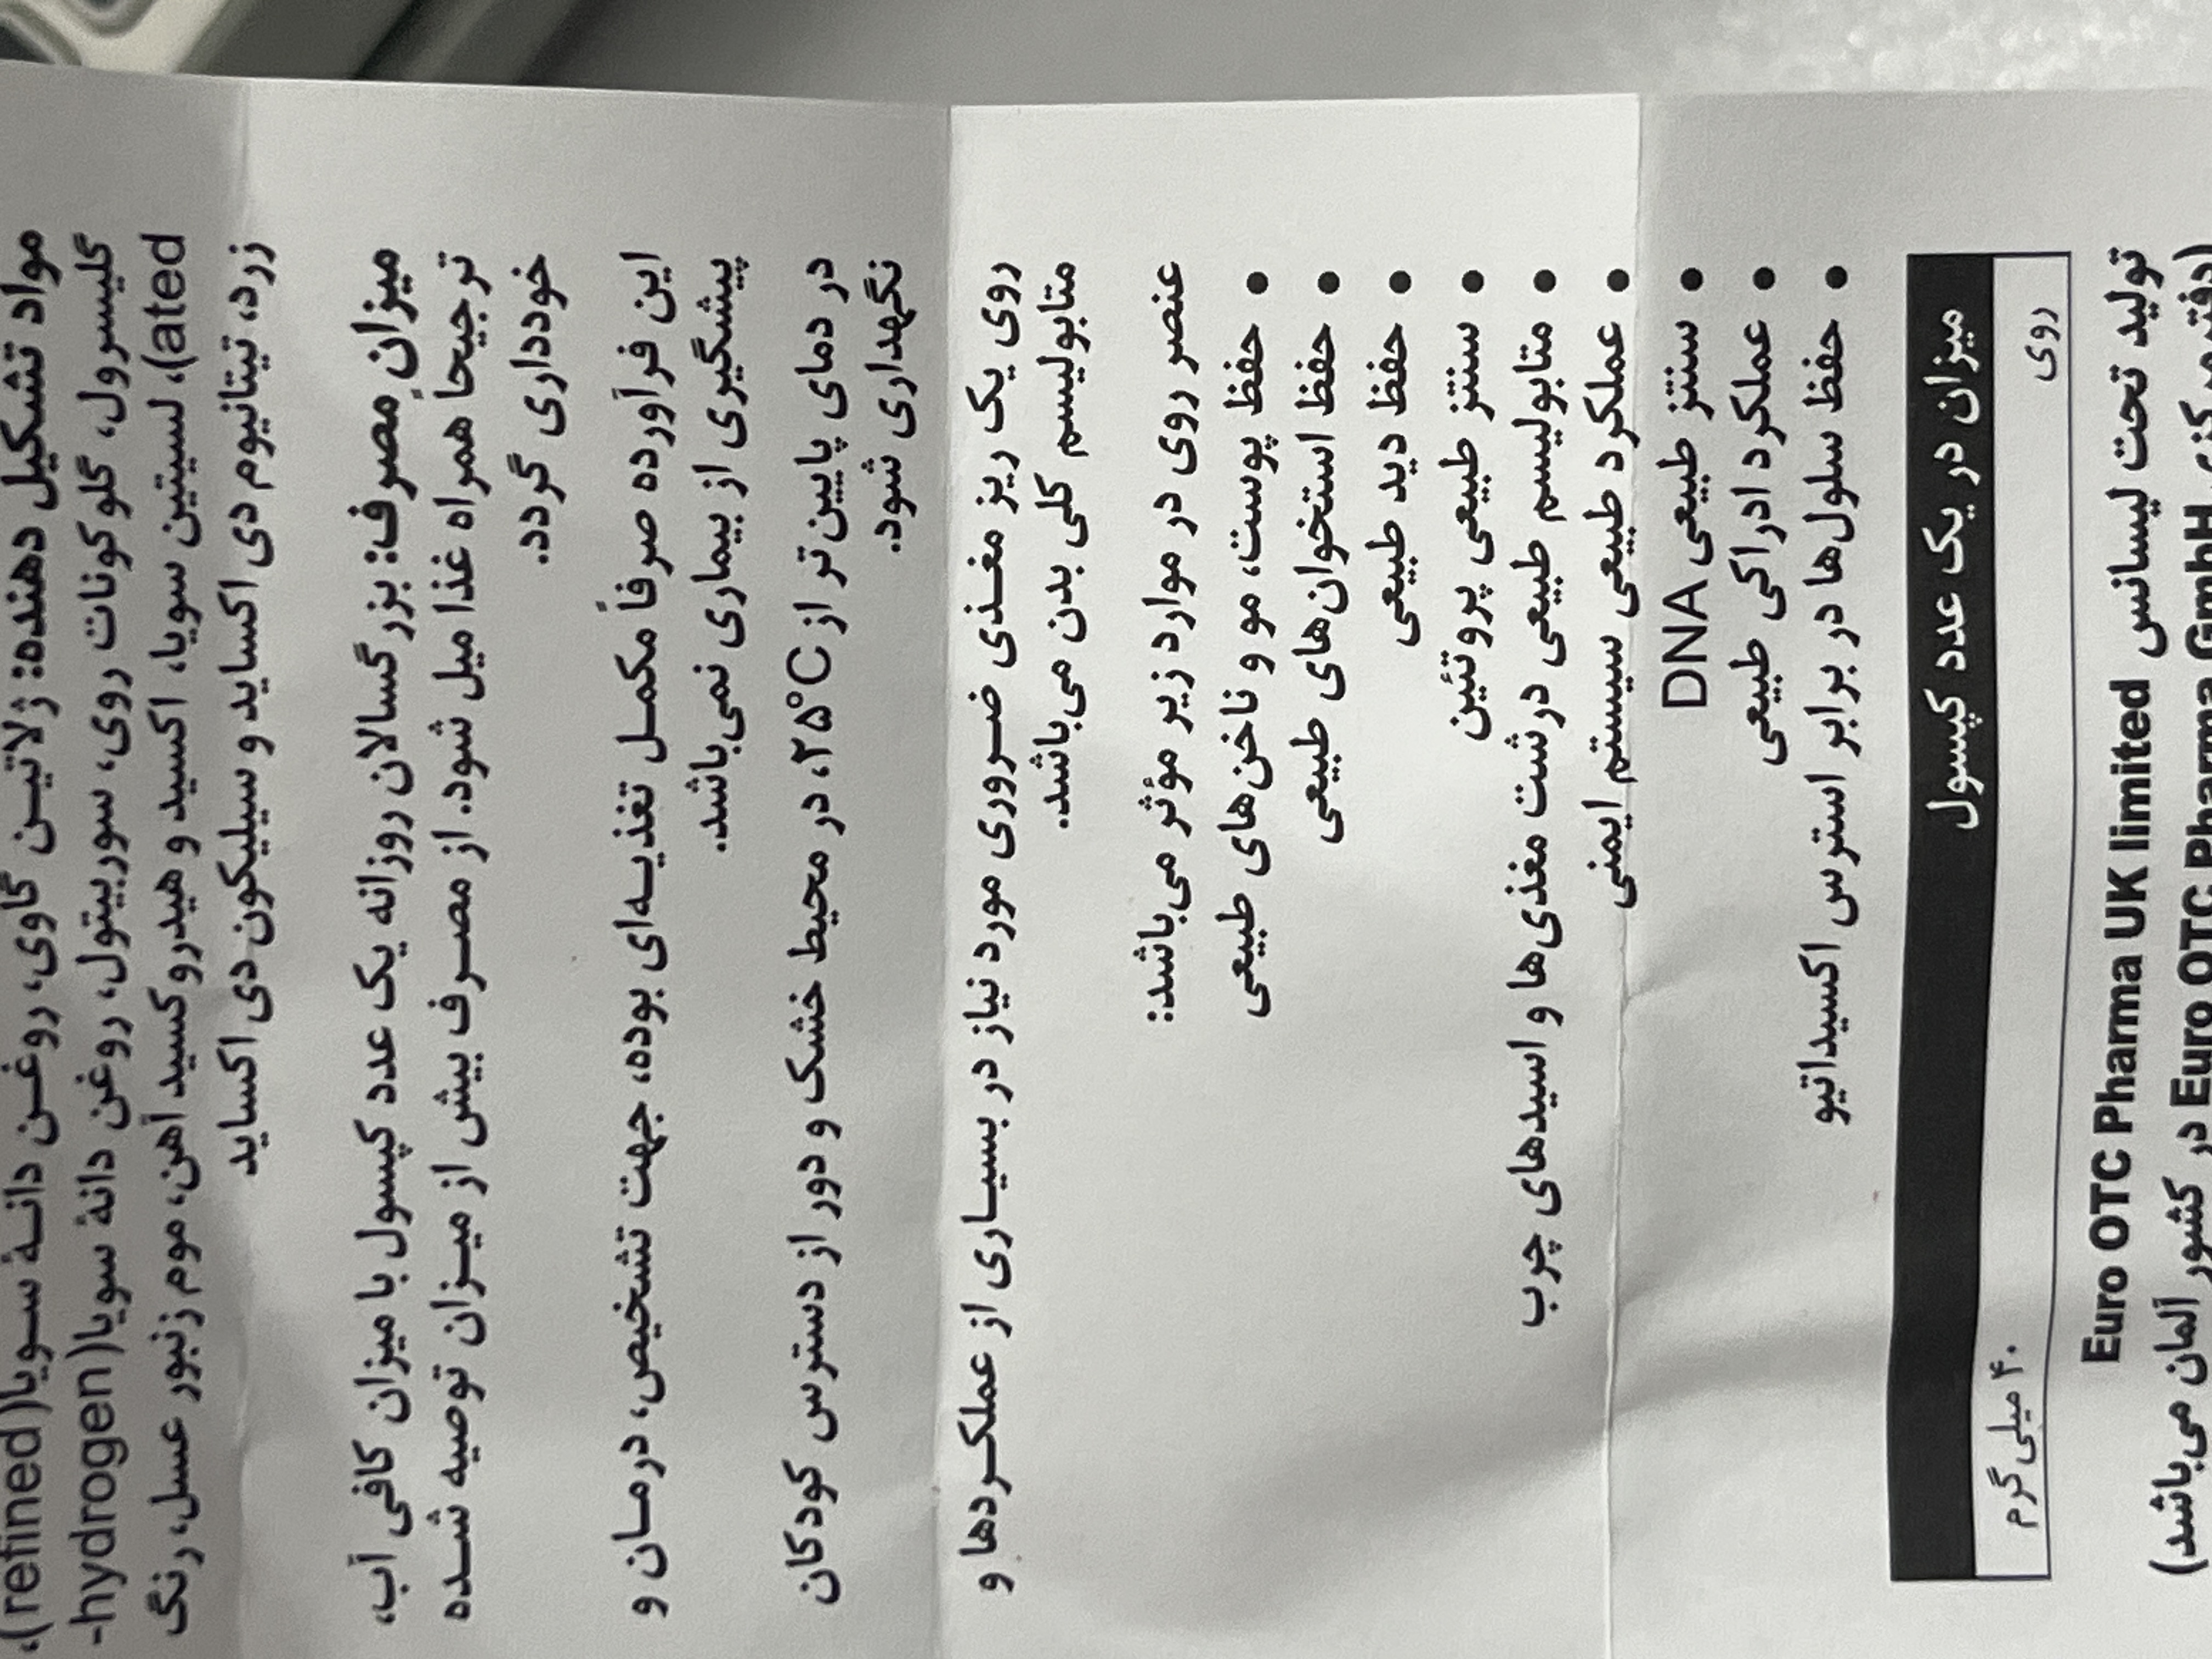 مواد تشکیل دهنده: ژلاتین گاوی، روغن دانهٔ سویا(refined)،
گلیسرول، گلوکونات روی، سوربیتول، روغن دانهٔ سویا(hydrogen-
ated)، لسیتین سویا، اکسید و هیدروکسید آهن، موم زنبور عسل، رنگ
زرد، تیتانیوم دی اکساید و سیلیکون دی اکساید
میزان مصرف: بزرگسالان روزانه یک عدد کپسول با میزان کافی آب،
ترجیحاً همراه غذا میل شود. از مصرف بیش از میزان توصیه شده
خودداری گردد.
این فرآورده صرفاً مکمل تغذیه‌ای بوده، جهت تشخیص، درمان و
پیشگیری از بیماری نمی‌باشد.
در دمای پایین‌تر از ۲۵°C، در محیط خشک و دور از دسترس کودکان
نگهداری شود.
روی یک ریز مغذی ضروری مورد نیاز در بسیاری از عملکردها و
متابولیسم کلی بدن می‌باشد.
عنصر روی در موارد زیر مؤثر می‌باشد:
• حفظ پوست، مو و ناخن‌های طبیعی
• حفظ استخوان‌های طبیعی
• حفظ دید طبیعی
• سنتز طبیعی پروتئین
• متابولیسم طبیعی درشت مغذی‌ها و اسیدهای چرب
• عملکرد طبیعی سیستم ایمنی
• سنتز طبیعی DNA
• عملکرد ادراکی طبیعی
• حفظ سلول‌ها در برابر استرس اکسیداتیو
میزان در یک عدد کپسول
روی ۴۰ میلی گرم
تولید تحت لیسانس Euro OTC Pharma UK limited
(دفتر مرکزی Euro OTC Pharma GmbH در کشور آلمان می‌باشد)